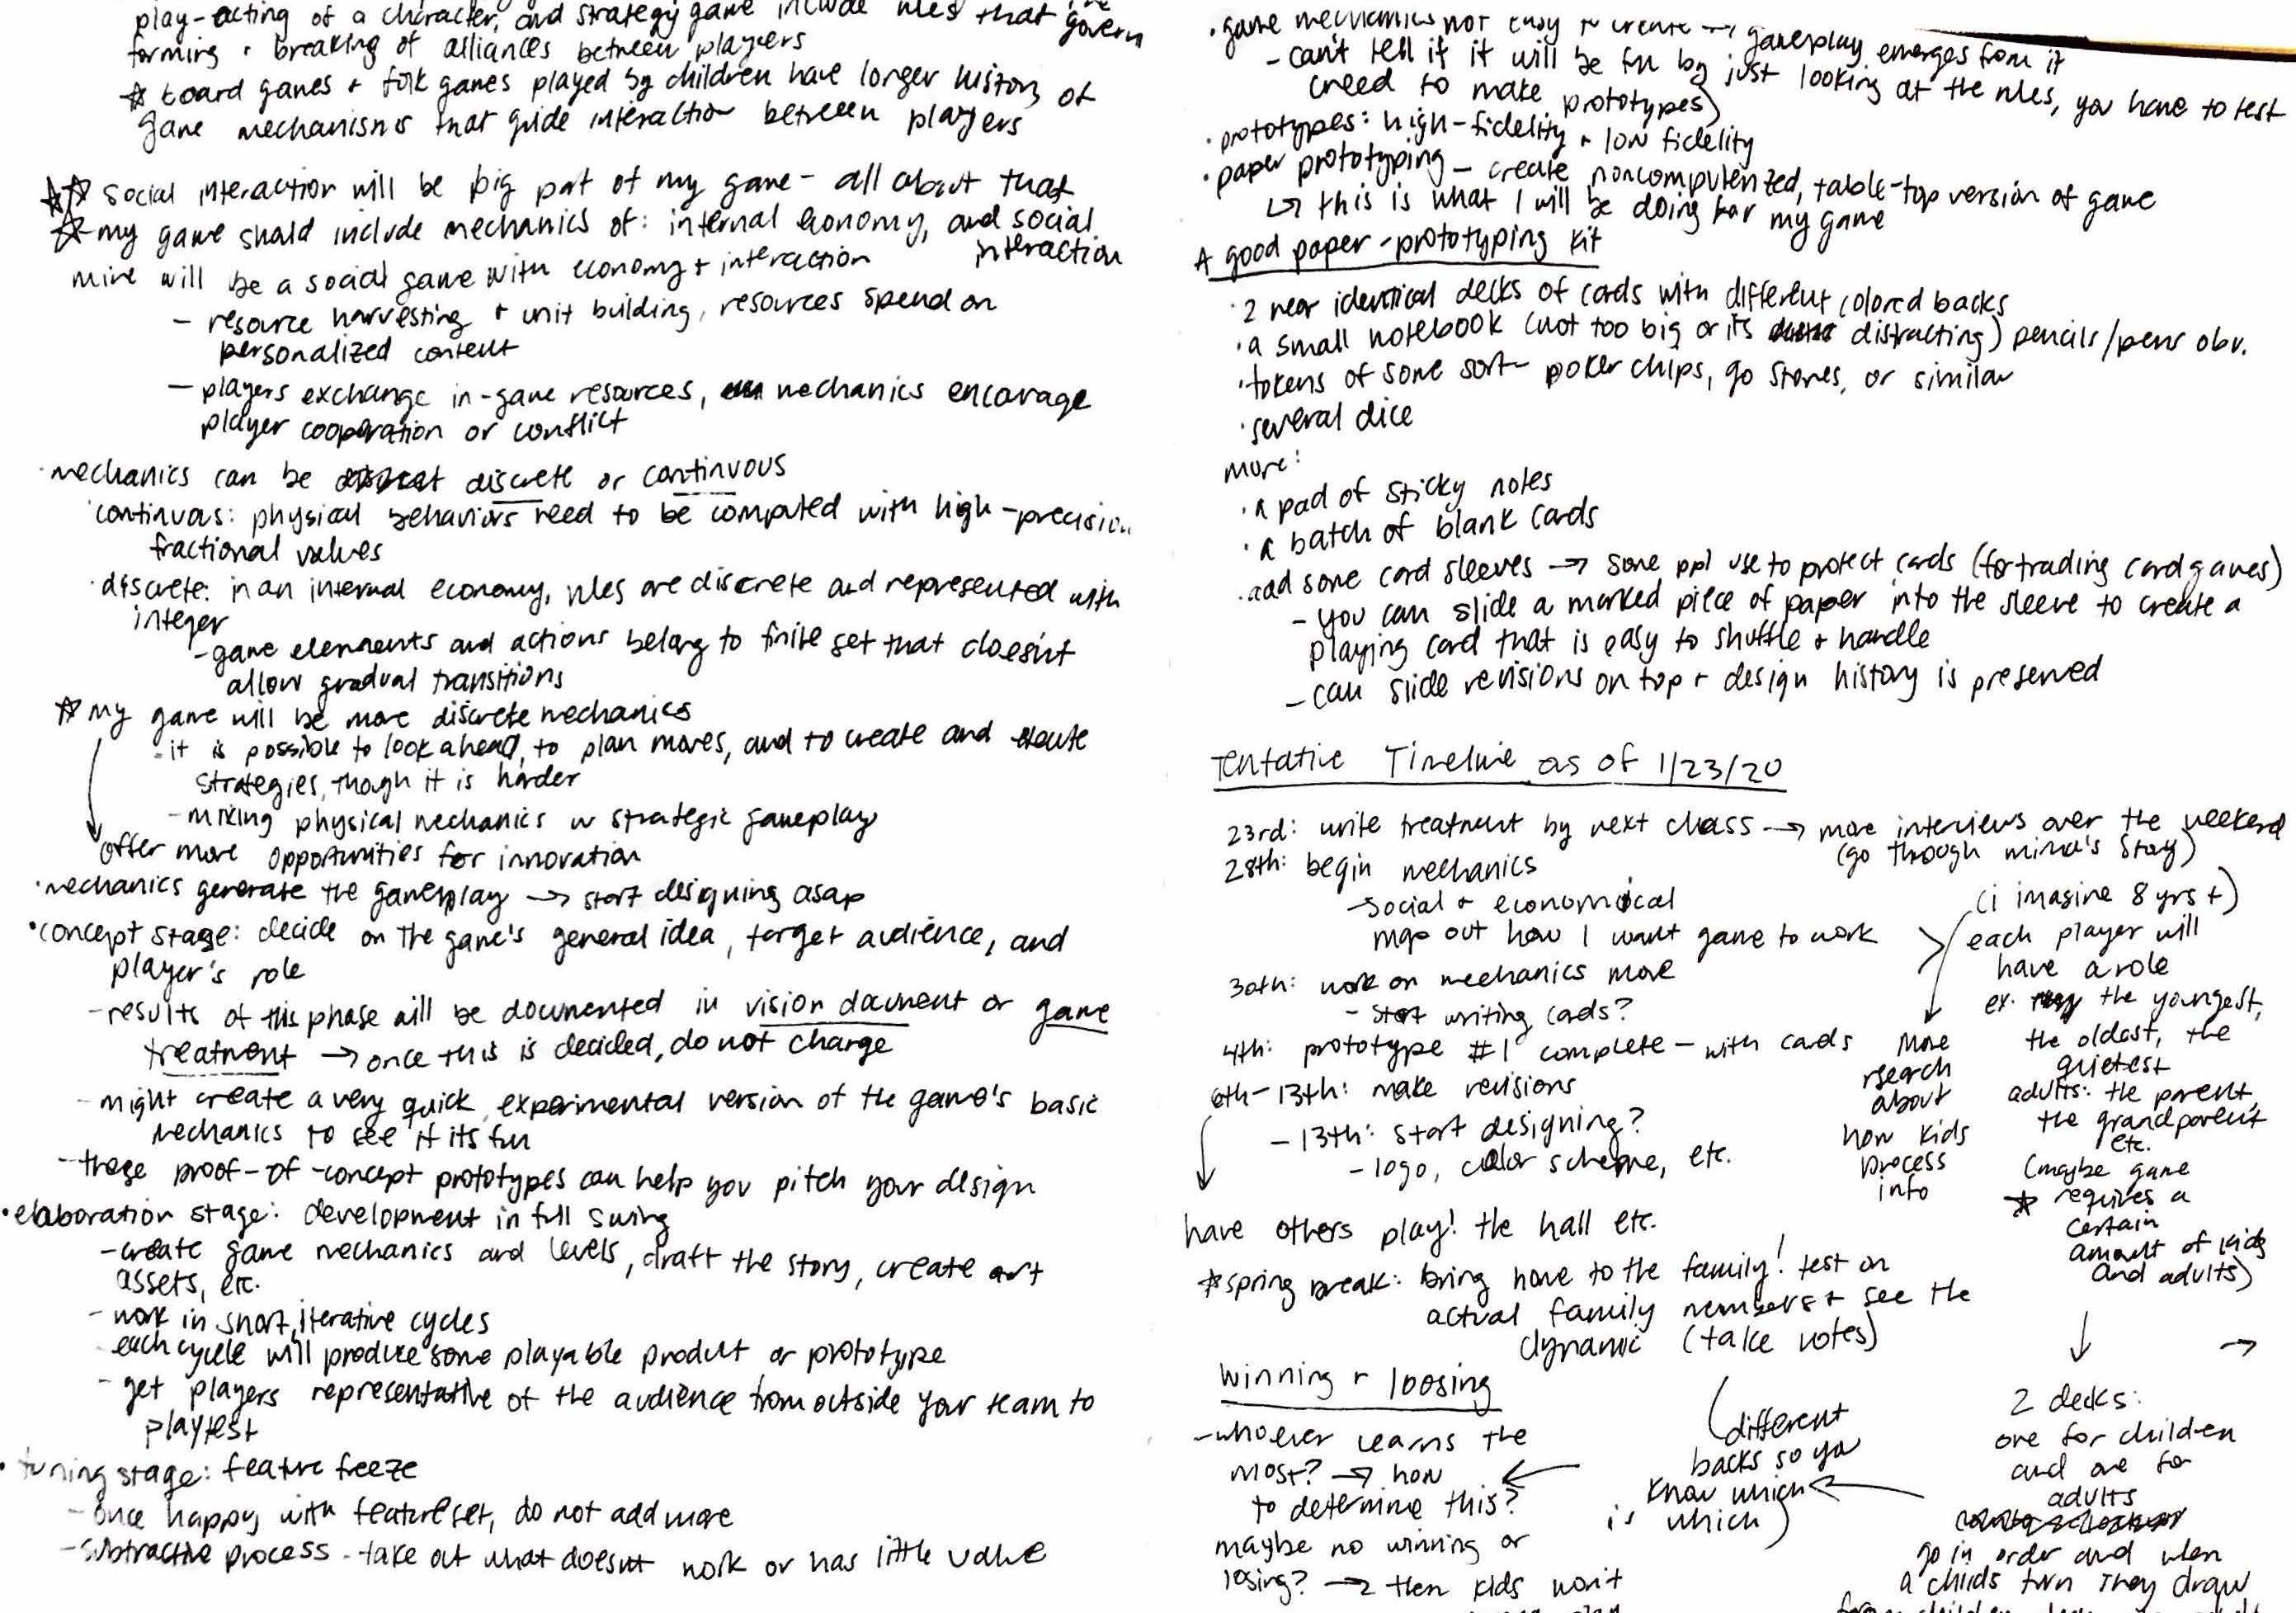 play-acting of a character, and strategy game include rules that govern
forming + breaking of alliances between players
☆ board games + folk games played by children have longer history of
game mechanisms that guide interaction between players
☆☆ social interaction will be big part of my game - all about that
☆ my game should include mechanics of: internal economy, and social
interaction
mine will be a social game with economy + interaction
- resource harvesting + unit building, resources spend on
personalized content
- players exchange in-game resources, mechanics encourage
player cooperation or conflict
· mechanics can be discrete or continuous
· continuous: physical behaviors need to be computed with high-precision
fractional values
· discrete: in an internal economy, rules are discrete and represented with
integer
- game elements and actions belong to finite set that doesn't
allow gradual transitions
☆ my game will be more discrete mechanics
- it is possible to look ahead, to plan moves, and to create and execute
strategies, though it is harder
- mixing physical mechanics w strategic gameplay
offer more opportunities for innovation
· mechanics generate the gameplay → start designing asap
· concept stage: decide on the game's general idea, target audience, and
player's role
- results of this phase will be documented in vision document or game
treatment → once this is decided, do not change
- might create a very quick, experimental version of the game's basic
mechanics to see if its fun
- these proof-of-concept prototypes can help you pitch your design
· elaboration stage: development in full swing
- create game mechanics and levels, draft the story, create art
assets, etc.
- work in short, iterative cycles
- each cycle will produce some playable product or prototype
- get players representative of the audience from outside your team to
playtest
· tuning stage: feature freeze
- once happy with feature set, do not add more
- subtractive process - take out what doesnt work or has little value
· game mechanics not easy to create → gameplay emerges from it
- can't tell if it will be fun by just looking at the rules, you have to test
(need to make prototypes)
· prototypes: high-fidelity + low fidelity
· paper prototyping - create noncomputerized, table-top version of game
↳ this is what I will be doing for my game
A good paper-prototyping kit
· 2 near identical decks of cards with different colored backs
· a small notebook (not too big or its distracting) pencils/pens obv.
· tokens of some sort - poker chips, go stones, or similar
· several dice
more:
· a pad of sticky notes
· a batch of blank cards
· add some card sleeves → some ppl use to protect cards (for trading card games)
- you can slide a marked piece of paper into the sleeve to create a
playing card that is easy to shuffle + handle
- can slide revisions on top + design history is preserved
Tentative Timeline as of 1/23/20
23rd: write treatment by next class → more interviews over the weekend
(go through mima's story)
28th: begin mechanics
- social + economical
map out how I want game to work
30th: work on mechanics more
- start writing cards?
4th: prototype #1 complete - with cards
6th-13th: make revisions
- 13th: start designing?
- logo, color scheme, etc.
have others play! the hall etc.
☆ spring break: bring home to the family! test on
actual family members + see the
dynamic (take votes)
(i imagine 8 yrs +)
each player will
have a role
ex. the youngest,
the oldest, the
quietest
adults: the parent,
the grandparent
etc.
(maybe game
☆ requires a
certain
amount of kids
and adults)
more
research
about
how kids
process
info
2 decks:
one for children
and one for
adults
go in order and when
a childs turn they draw
(different
backs so you
know which
is which)
winning + loosing
- whoever learns the
most? → how
to determine this?
maybe no winning or
losing? → then kids won't